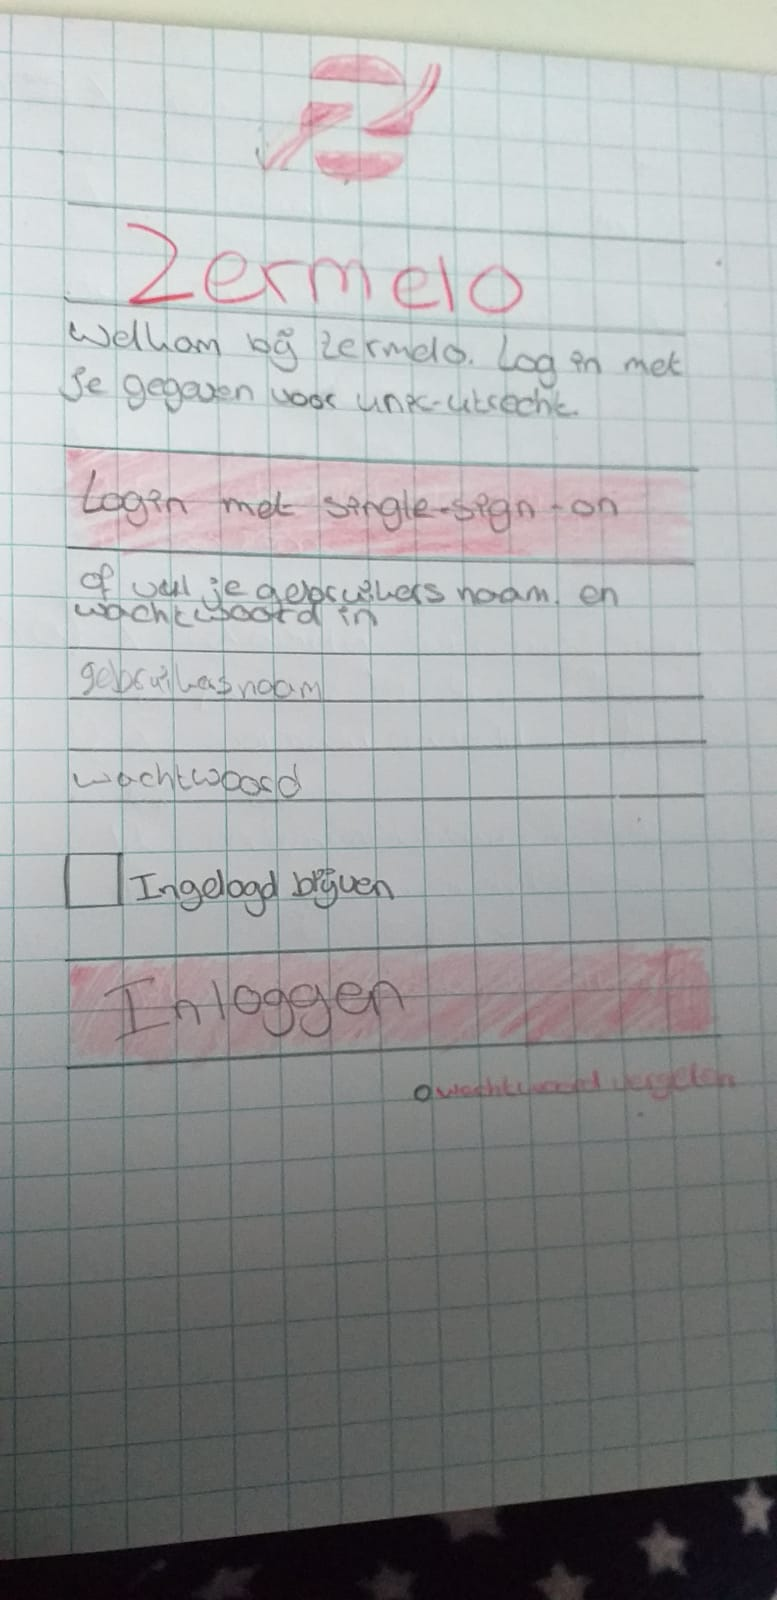 Zermelo
Welkom bij zermelo. Log in met
je gegeven voor unic-utrecht.
Login met single-sign-on
of vul je gebruikers naam en
wachtwoord in
gebruikersnaam
wachtwoord
Ingelogd blijven
Inloggen
wachtwoord vergeten